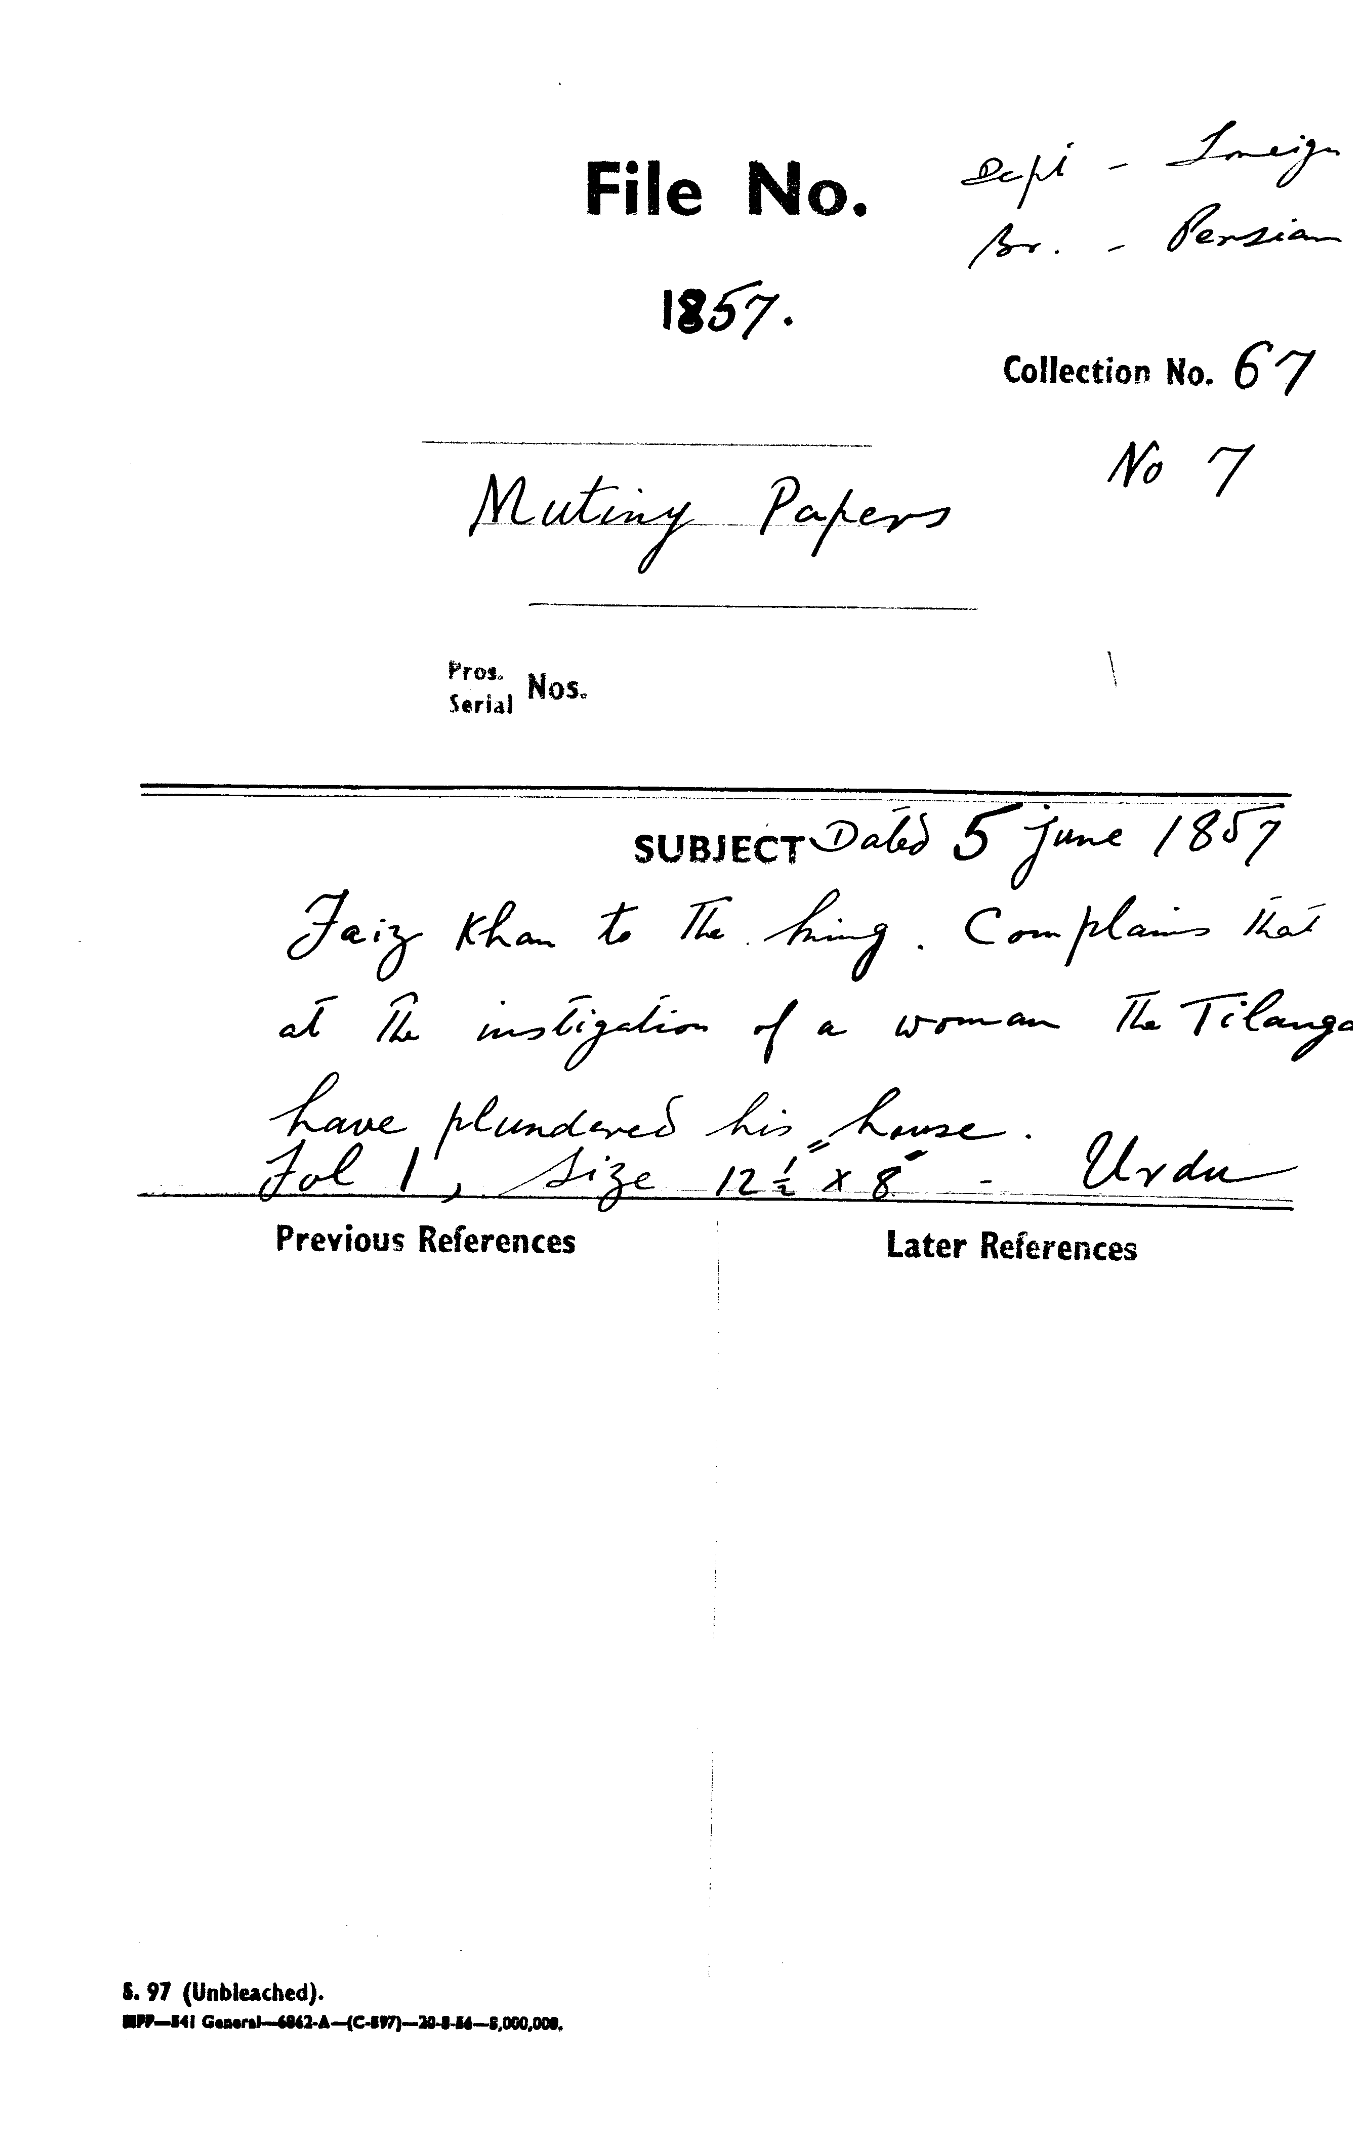 Dept - Foreign
File No.
Br. - Persian
1857.
Collection No. 67
No 7
Mutiny Papers
Pros.
Serial Nos.
SUBJECT Dated 5 June 1857
Faiz Khan to the king. Complains that
at the instigation of a woman the Tilanga
have plundered his house.
Fol 1, Size 12½" x 8" - Urdu
Previous References
Later References
S. 97 (Unbleached).
General